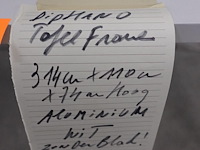 DiPHANO
Tafel Frame
314cm x 110cm
x 74cm Hoog
ALUMINIUM
WIT
zonder Blad!